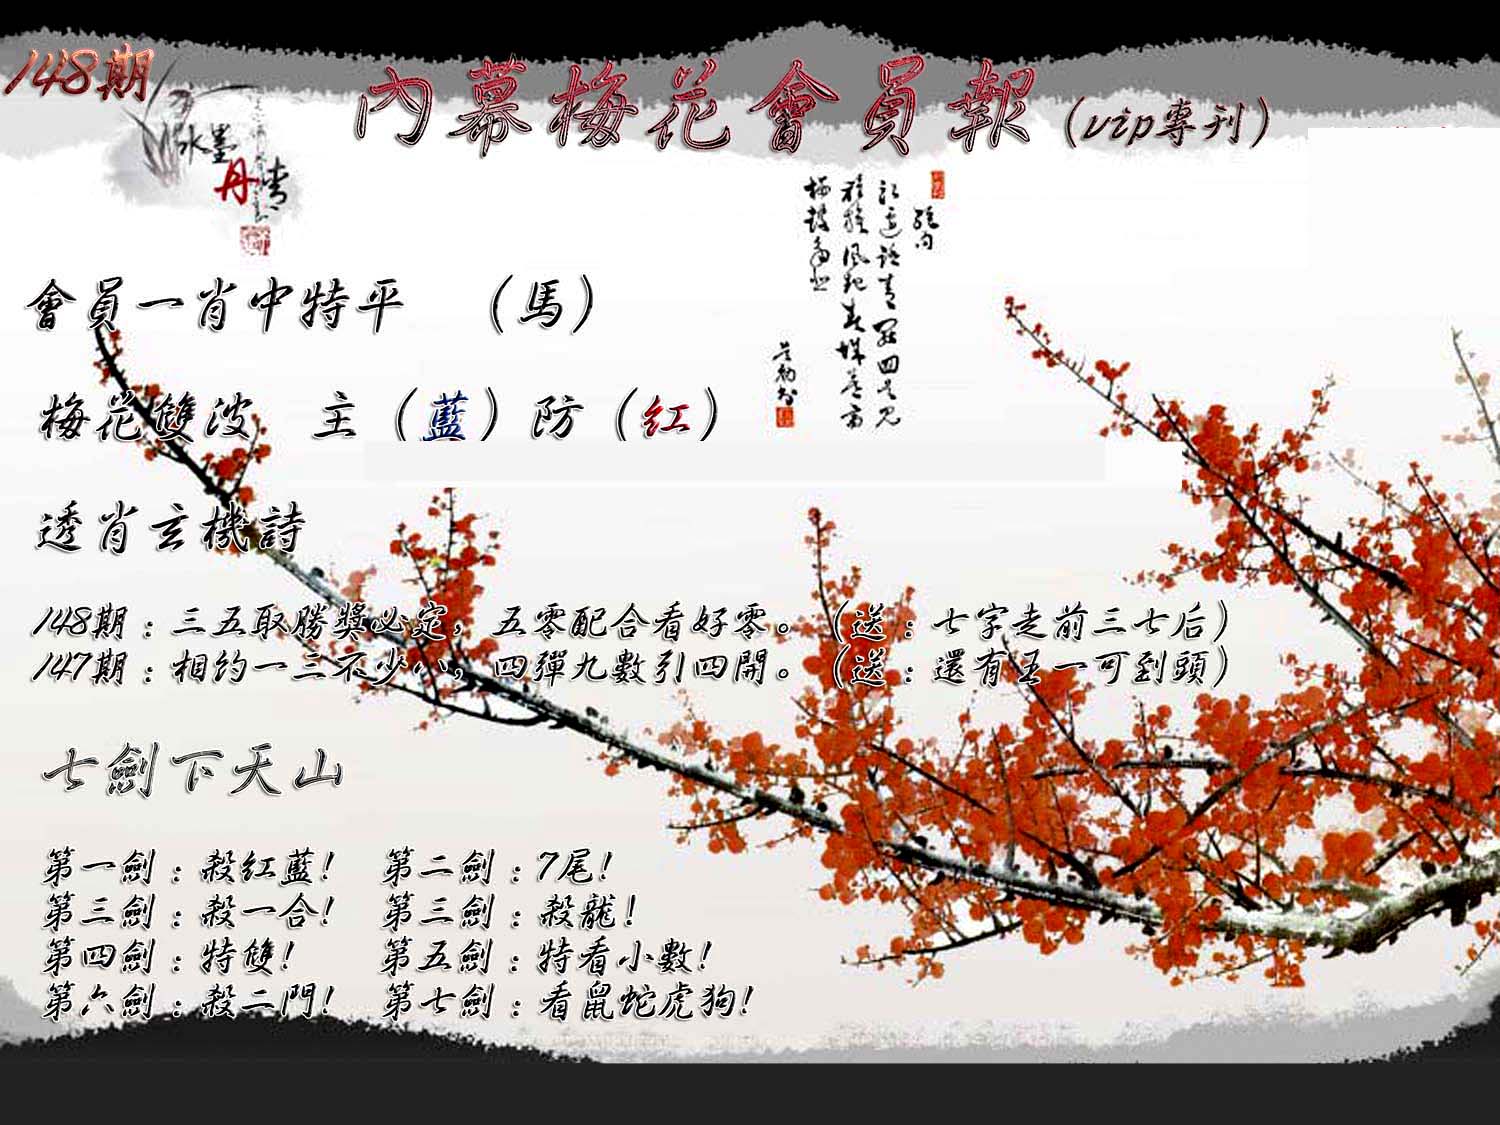 148期
內幕梅花會員報（vip專刊）
水墨
丹青
絕句
會員一肖中特平　（馬）
梅花雙波　主（藍）防（紅）
透肖玄機詩
148期：三五取勝獎必定，五零配合看好零。（送：七字走前三七后）
147期：相約一三不少八，四彈九數引四開。（送：還有王一可到頭）
七劍下天山
第一劍：殺紅藍！　第二劍：7尾！
第三劍：殺一合！　第三劍：殺龍！
第四劍：特雙！　第五劍：特看小數！
第六劍：殺二門！　第七劍：看鼠蛇虎狗！